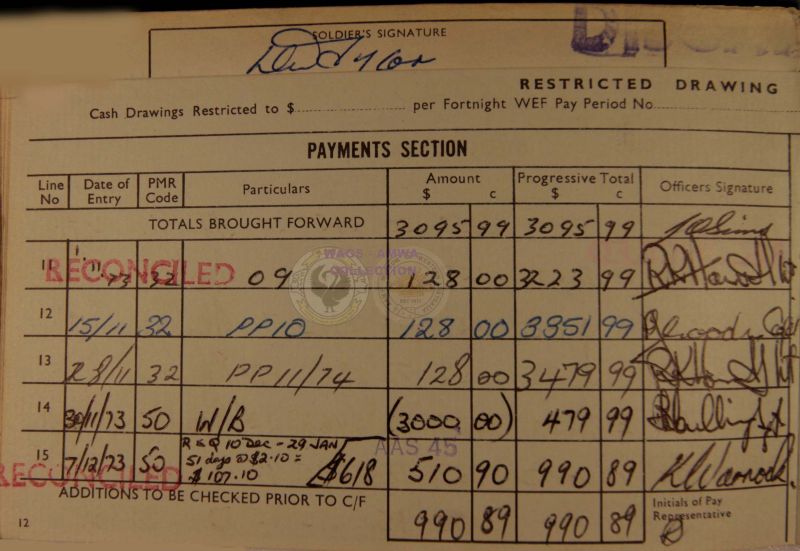 SOLDIER'S SIGNATURE
RESTRICTED DRAWING
Cash Drawings Restricted to $ per Fortnight WEF Pay Period No
PAYMENTS SECTION
Line No Date of Entry PMR Code Particulars Amount $ c Progressive Total $ c Officers Signature
TOTALS BROUGHT FORWARD 3095 99 3095 99
WAGS AMWA
COLLECTION
11 32 09 128 00 3223 99
RECONCILED
12 15/11 32 PP10 128 00 3351 99
13 28/11 32 PP11/74 128 00 3479 99
14 30/11/73 50 W/B (3000 00) 479 99
AAS 45
15 7/12/73 50 R & Q 10 DEC - 29 JAN 51 days @ $2.10 = $107.10 $618 510 90 990 89 K Warnock
RECONCILED
ADDITIONS TO BE CHECKED PRIOR TO C/F 990 89 990 89 Initials of Pay Representative
12